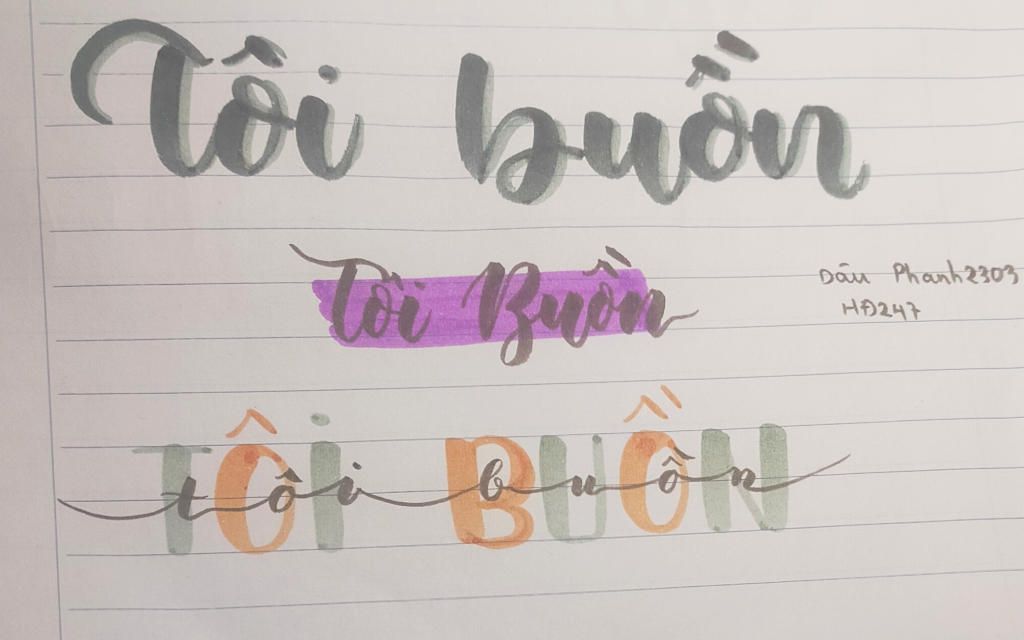 Tôi buồn
Tôi Buồn
Dâu Phanh2303
HĐ247
TÔI BUỒN
tôi buồn